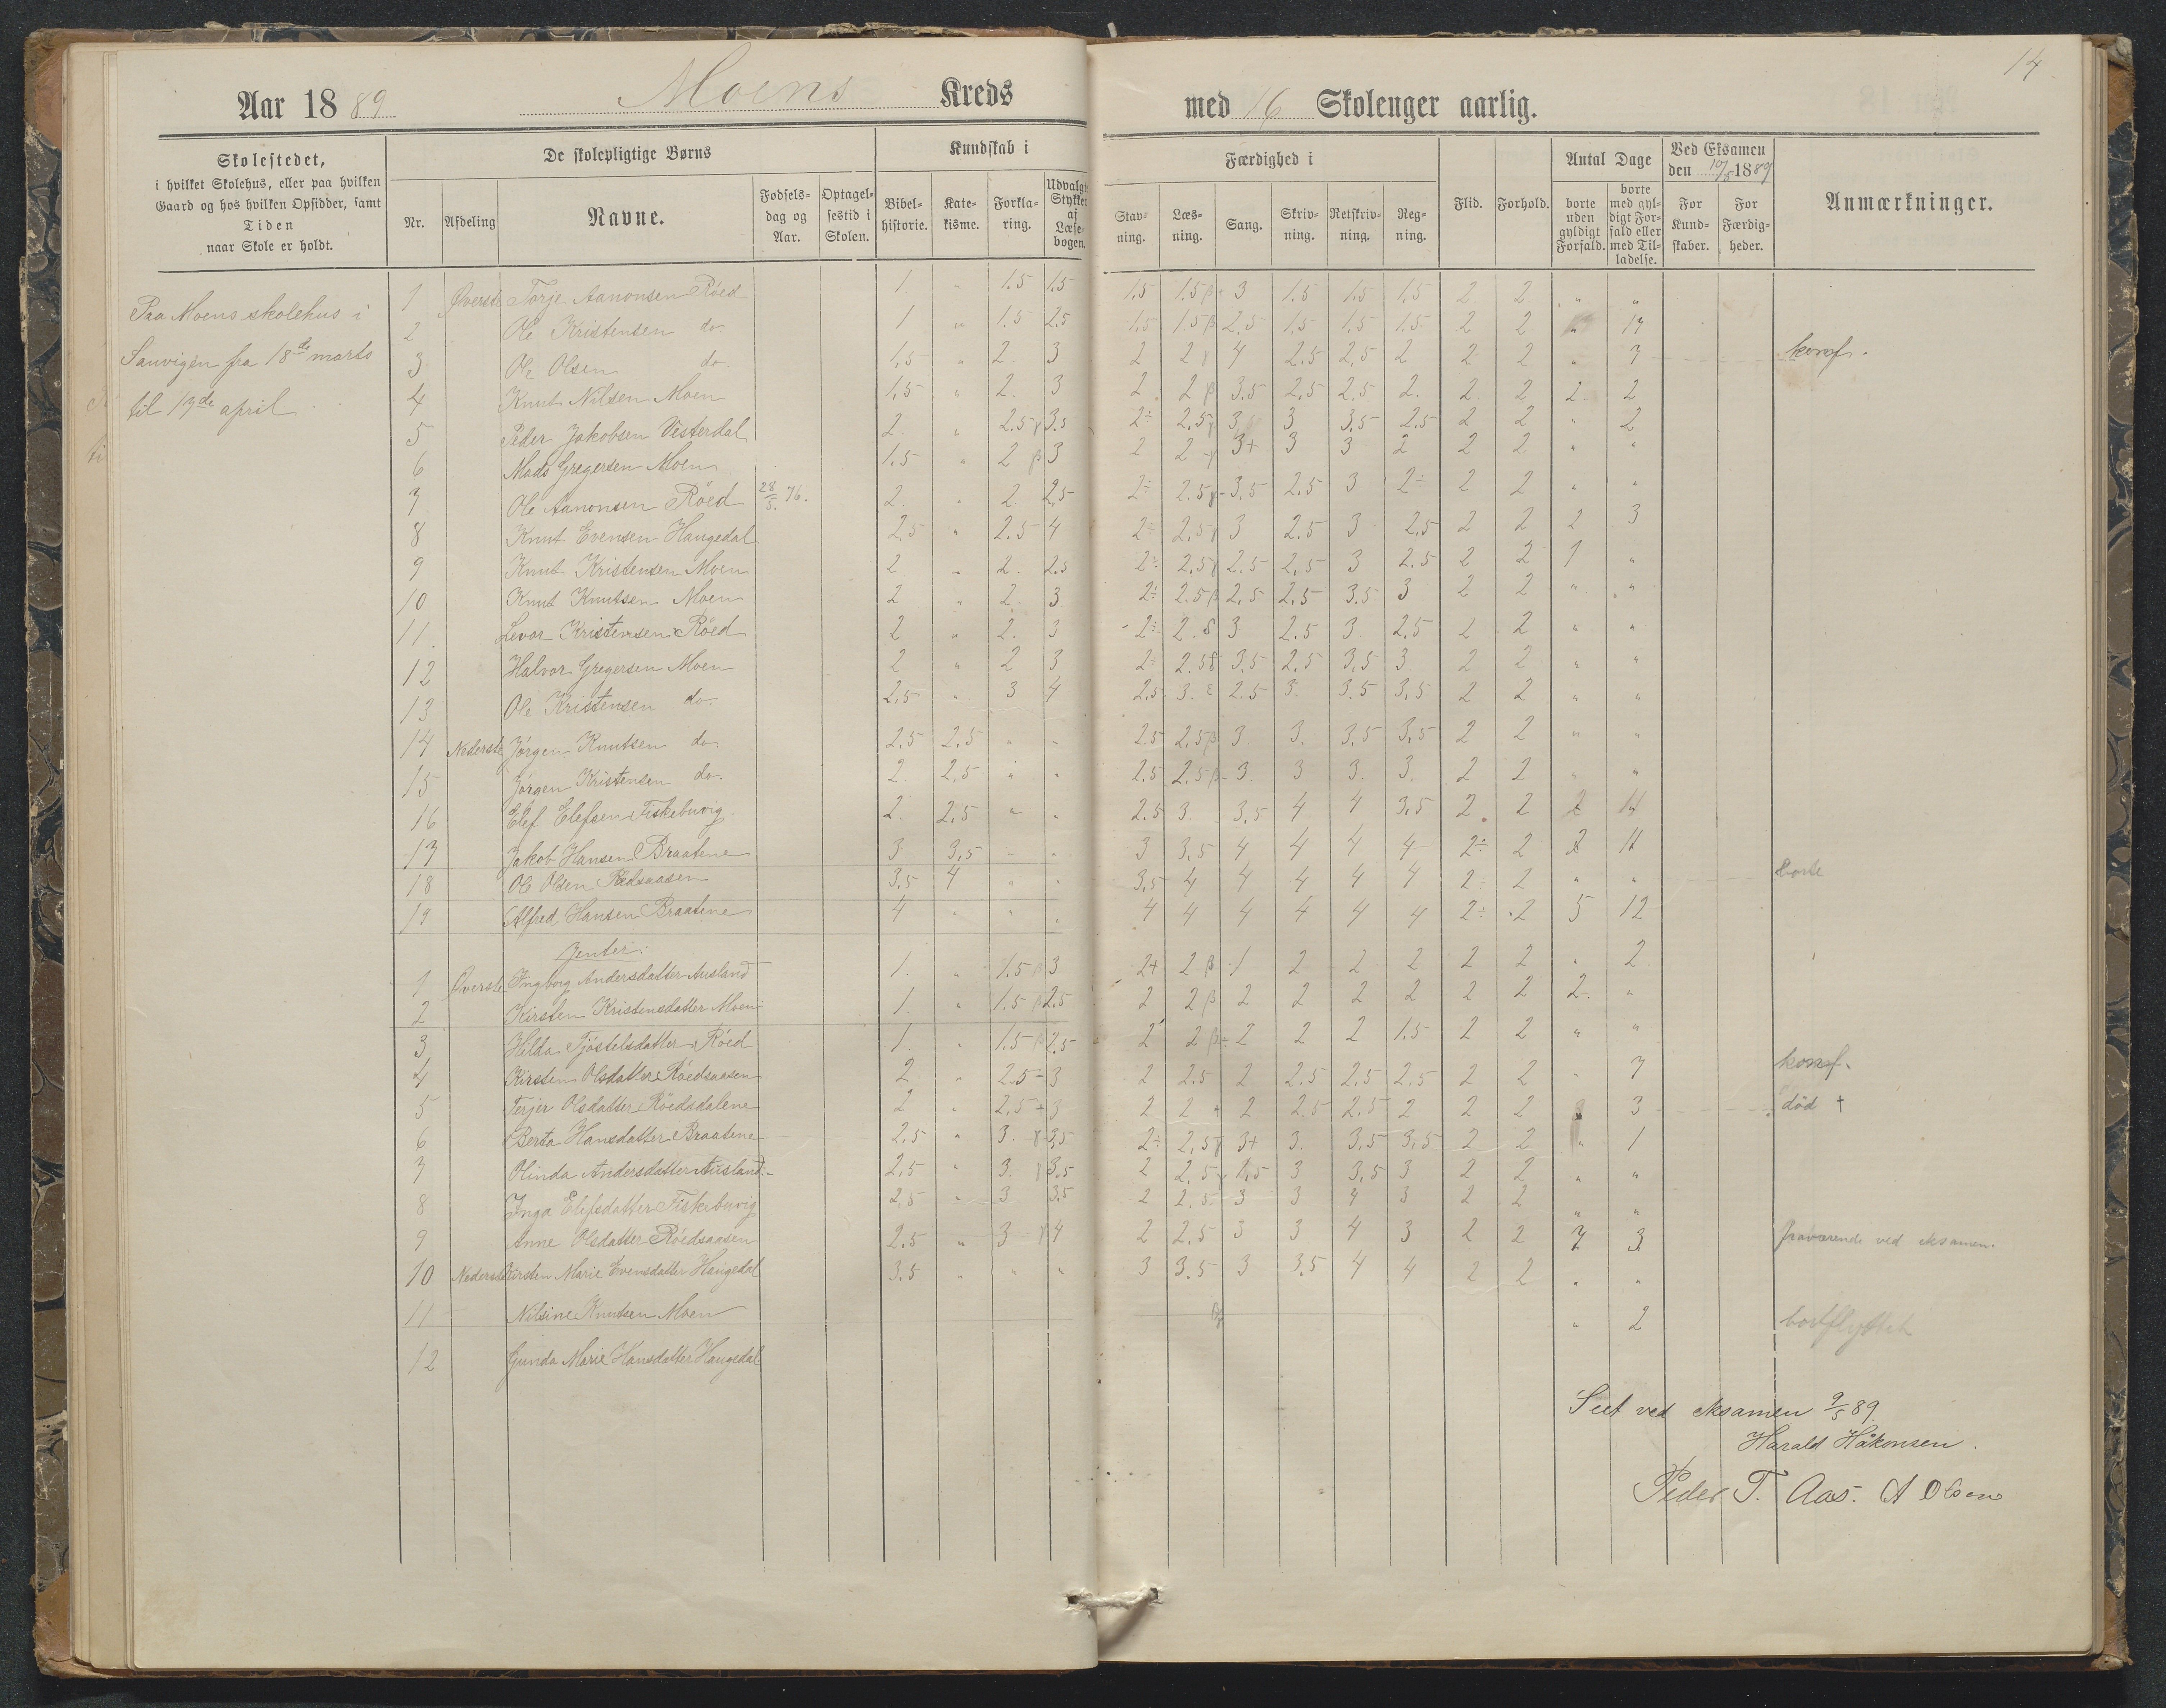 14
Aar 1889 Moens Kreds med 16 Skolenger aarlig.
Skolestedet, i hvilket Skolehus, eller paa hvilken Gaard og hos hvilken Opsidder, samt Tiden naar Skole er holdt.
De skolepligtige Børns
Nr. Afdeling Navne. Fødsels-dag og Aar. Optagel-sestid i Skolen.
Kundskab i
Bibel-historie. Kate-kisme. Forkla-ring. Udvalgte Stykker af Læse-bogen.
Færdighed i
Stav-ning. Læs-ning. Sang. Skriv-ning. Retskriv-ning. Reg-ning.
Flid. Forhold.
Antal Dage
borte uden gyldigt Forfald. borte med gyl-digt For-fald eller med Til-ladelse.
Ved Eksamen den 10/5 1889
For Kund-skaber. For Færdig-heder.
Anmærkninger.
Paa Moens skolehus i
Sanvigen fra 18de marts
til 13de april
1 Øverste Torje Aanonsen Röed 1 " 1.5 1.5 1.5 1.5 β 3 1.5 1.5 1.5 2 2 " "
2 Ole Kristensen do. 1 " 1.5 2.5 1.5 1.5 β 2.5 1.5 1.5 1.5 2 2 " 17
3 Ole Olsen do. 1,5 " 2. 3 2 2 γ 4 2.5 2,5 2 2 2 " 7 konf.
4 Knut Nilsen Moen 1,5 " 2. 3 2 2 β 3.5 2,5 2.5 2. 2 2 2 2
5 Peder Jakobsen Vesterdal 2. " 2.5 γ 3.5 2÷ 2,5 γ 3 3 3,5 2.5 2 2 " 2
6 Mads Gregersen Moen 1.5 " 2 β 3 2 2 γ 3+ 3 3 2 2 2 " "
7 Ole Aanonsen Röed 28/5. 76. 2. " 2. 2,5 2÷ 2.5 γ 3.5 2.5 3 2÷ 2 2 " "
8 Knut Evensen Haugedal 2,5 " 2.5 4 2÷ 2,5 γ 3 2.5 3 2,5 2 2 2 3
9 Knut Kristensen Moen 2 " 2. 2.5 2÷ 2,5 γ 2.5 2,5 3 2.5 2 2 1 "
10 Knut Knutsen Moen 2 " 2. 3 2÷ 2.5 β 2,5 2,5 3.5 3 2 2 " "
11. Levor Kristensen Röed 2 " 2. 3 2÷ 2. δ 3 2.5 3. 2,5 2 2 " "
12 Halvor Gregersen Moen 2 " 2 3 2÷ 2.5 δ 3.5 2.5 3,5 3. 2 2 " "
13 Ole Kristensen do. 2,5 " 3 4 2.5 3. ε 2.5 3. 3.5 3,5 2 2 " "
14 Nederste Jörgen Knutsen do. 2,5 2,5 " " 2.5 2,5 β 3. 3. 3,5 3,5 2 2 " "
15 Jörgen Kristensen do. 2 2,5 " " 2.5 2.5 β 3. 3 3. 3. 2 2 " "
16 Elef Elefsen Fiskebuvig 2. 2,5 " " 2.5 3. 3,5 4 4 3,5 2 2
17 Jakob Hansen Braatene 3 3,5 " " 3 3,5 4 4 4 4 2÷ 2 11
18 Ole Olsen Rödsaasen 3,5 4 " " 3,5 4 4 4 4 4 2÷ 2 " " borte
19 Alfred Hansen Braatene 4 " " " 4 4 4 4 4 4 2÷ 2 5 12
Jenter:
1 Øverste Ingborg Andersdatter Ausland 1. " 1.5 β 3 2+ 2 β 1 2 2 2 2 2 " 2
2 Kirsten Kristensdatter Moen 1. " 1.5 β 2.5 2 2 β 2 2 2 2 2 2 2 "
3 Hilda Tjöstelsdatter Röed 1. " 1.5 β 2.5 2 2 β 2 2 2 1.5 2 2 " "
4 Kirsten Olsdatter Röedsaasen 2 " 2.5 3 2 2.5 2 2.5 2.5 2.5 2 2 " 7 konf.
5 Terjer Olsdatter Röedsdalene 2 " 2,5 + 3 2 2 + 2 2.5 2.5 2 2 2 3 död †
6 Berta Hansdatter Braatene 2,5 " 3. γ 3,5 2÷ 2,5 γ 3+ 3. 3,5 3,5 2 2 " 1
7 Olinda Andersdatter Ausland 2,5 " 3. γ 3,5 2 2.5 γ 1,5 3 3,5 3 2 2 " "
8 Inga Elefsdatter Fiskebuvig 2,5 " 3 3.5 2 2.5 3 3 4 3 2 2 " "
9 Anne Olsdatter Röedsaasen 2.5 " 3 γ 4 2 2.5 3 3 4 3 2 2 7 3 fraværende ved eksamen.
10 Nederste Kirsten Marie Evensdatter Haugedal 3.5 " " " 3 3.5 3 3.5 4 4 2 2 " "
11 Nilsine Knutsen Moen " 2 bortflyttet
12 Gunda Marie Hansdatter Haugedal
Seet ved eksamen 9/5 89.
Harald Håkonsen.
Peder T. Aas. A Olsen